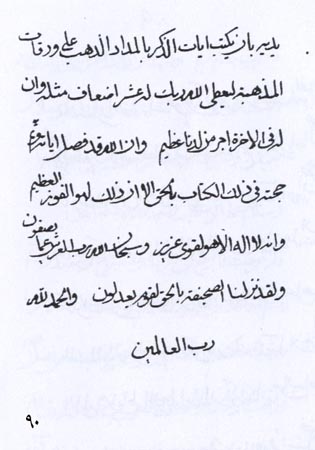 يديه بان يكتب ايات الذكر بالمداد الذهب على ورقات
المذهبة ليعطي الله ربك له عشر اضعاف مثله وان
له في الاخرة اجر من لدنا عظيم وان الله قد فصل اياته
حجته في ذلك الكتاب بالحق الا ان ذلك لهو الفوز العظيم
وانه لا اله الا هو لقوي عزيز وسبحان الله رب العرش عما يصفون
ولقد نزلنا الصحيفة بالحق لقوم يعدلون والحمد لله
رب العالمين
٩٠